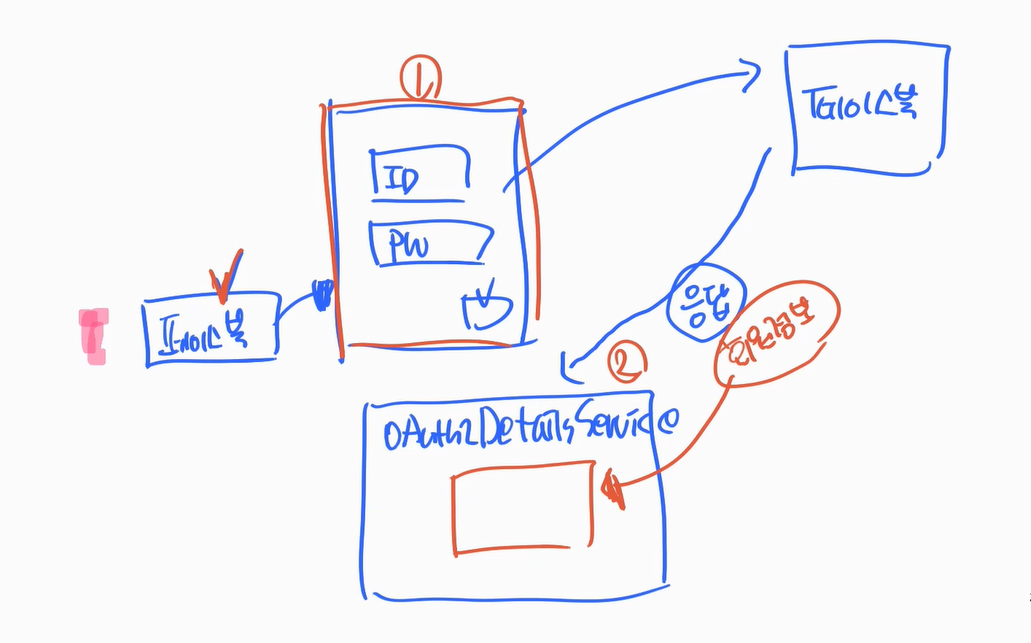 ①
ID
PW
페이스북
페이스북
응답
회원정보
②
OAuth2DetailsService